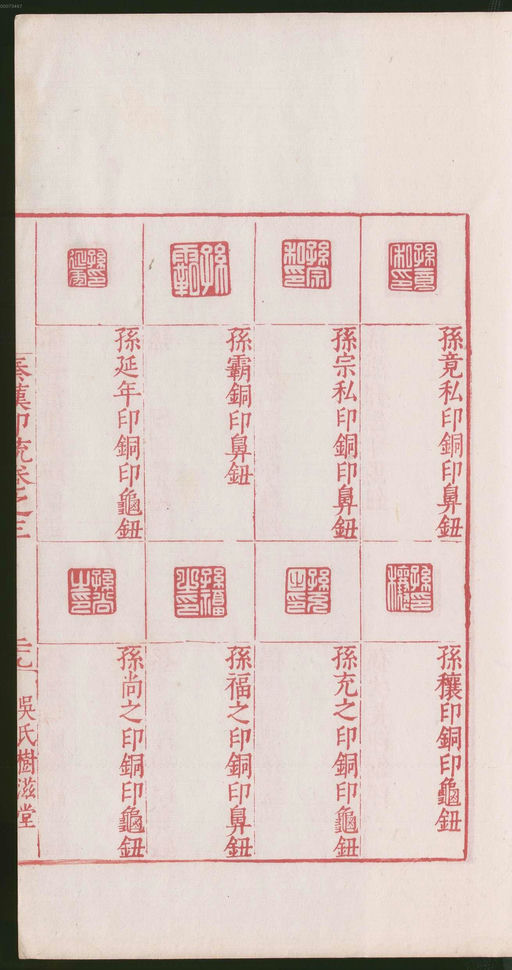 孫竟私印銅印鼻鈕
孫宗私印銅印鼻鈕
孫霸銅印鼻鈕
孫延年印銅印龜鈕
孫穰印銅印龜鈕
孫充之印銅印龜鈕
孫福之印銅印鼻鈕
孫尚之印銅印龜鈕
秦漢印統卷之三
吳氏樹滋堂
00073467